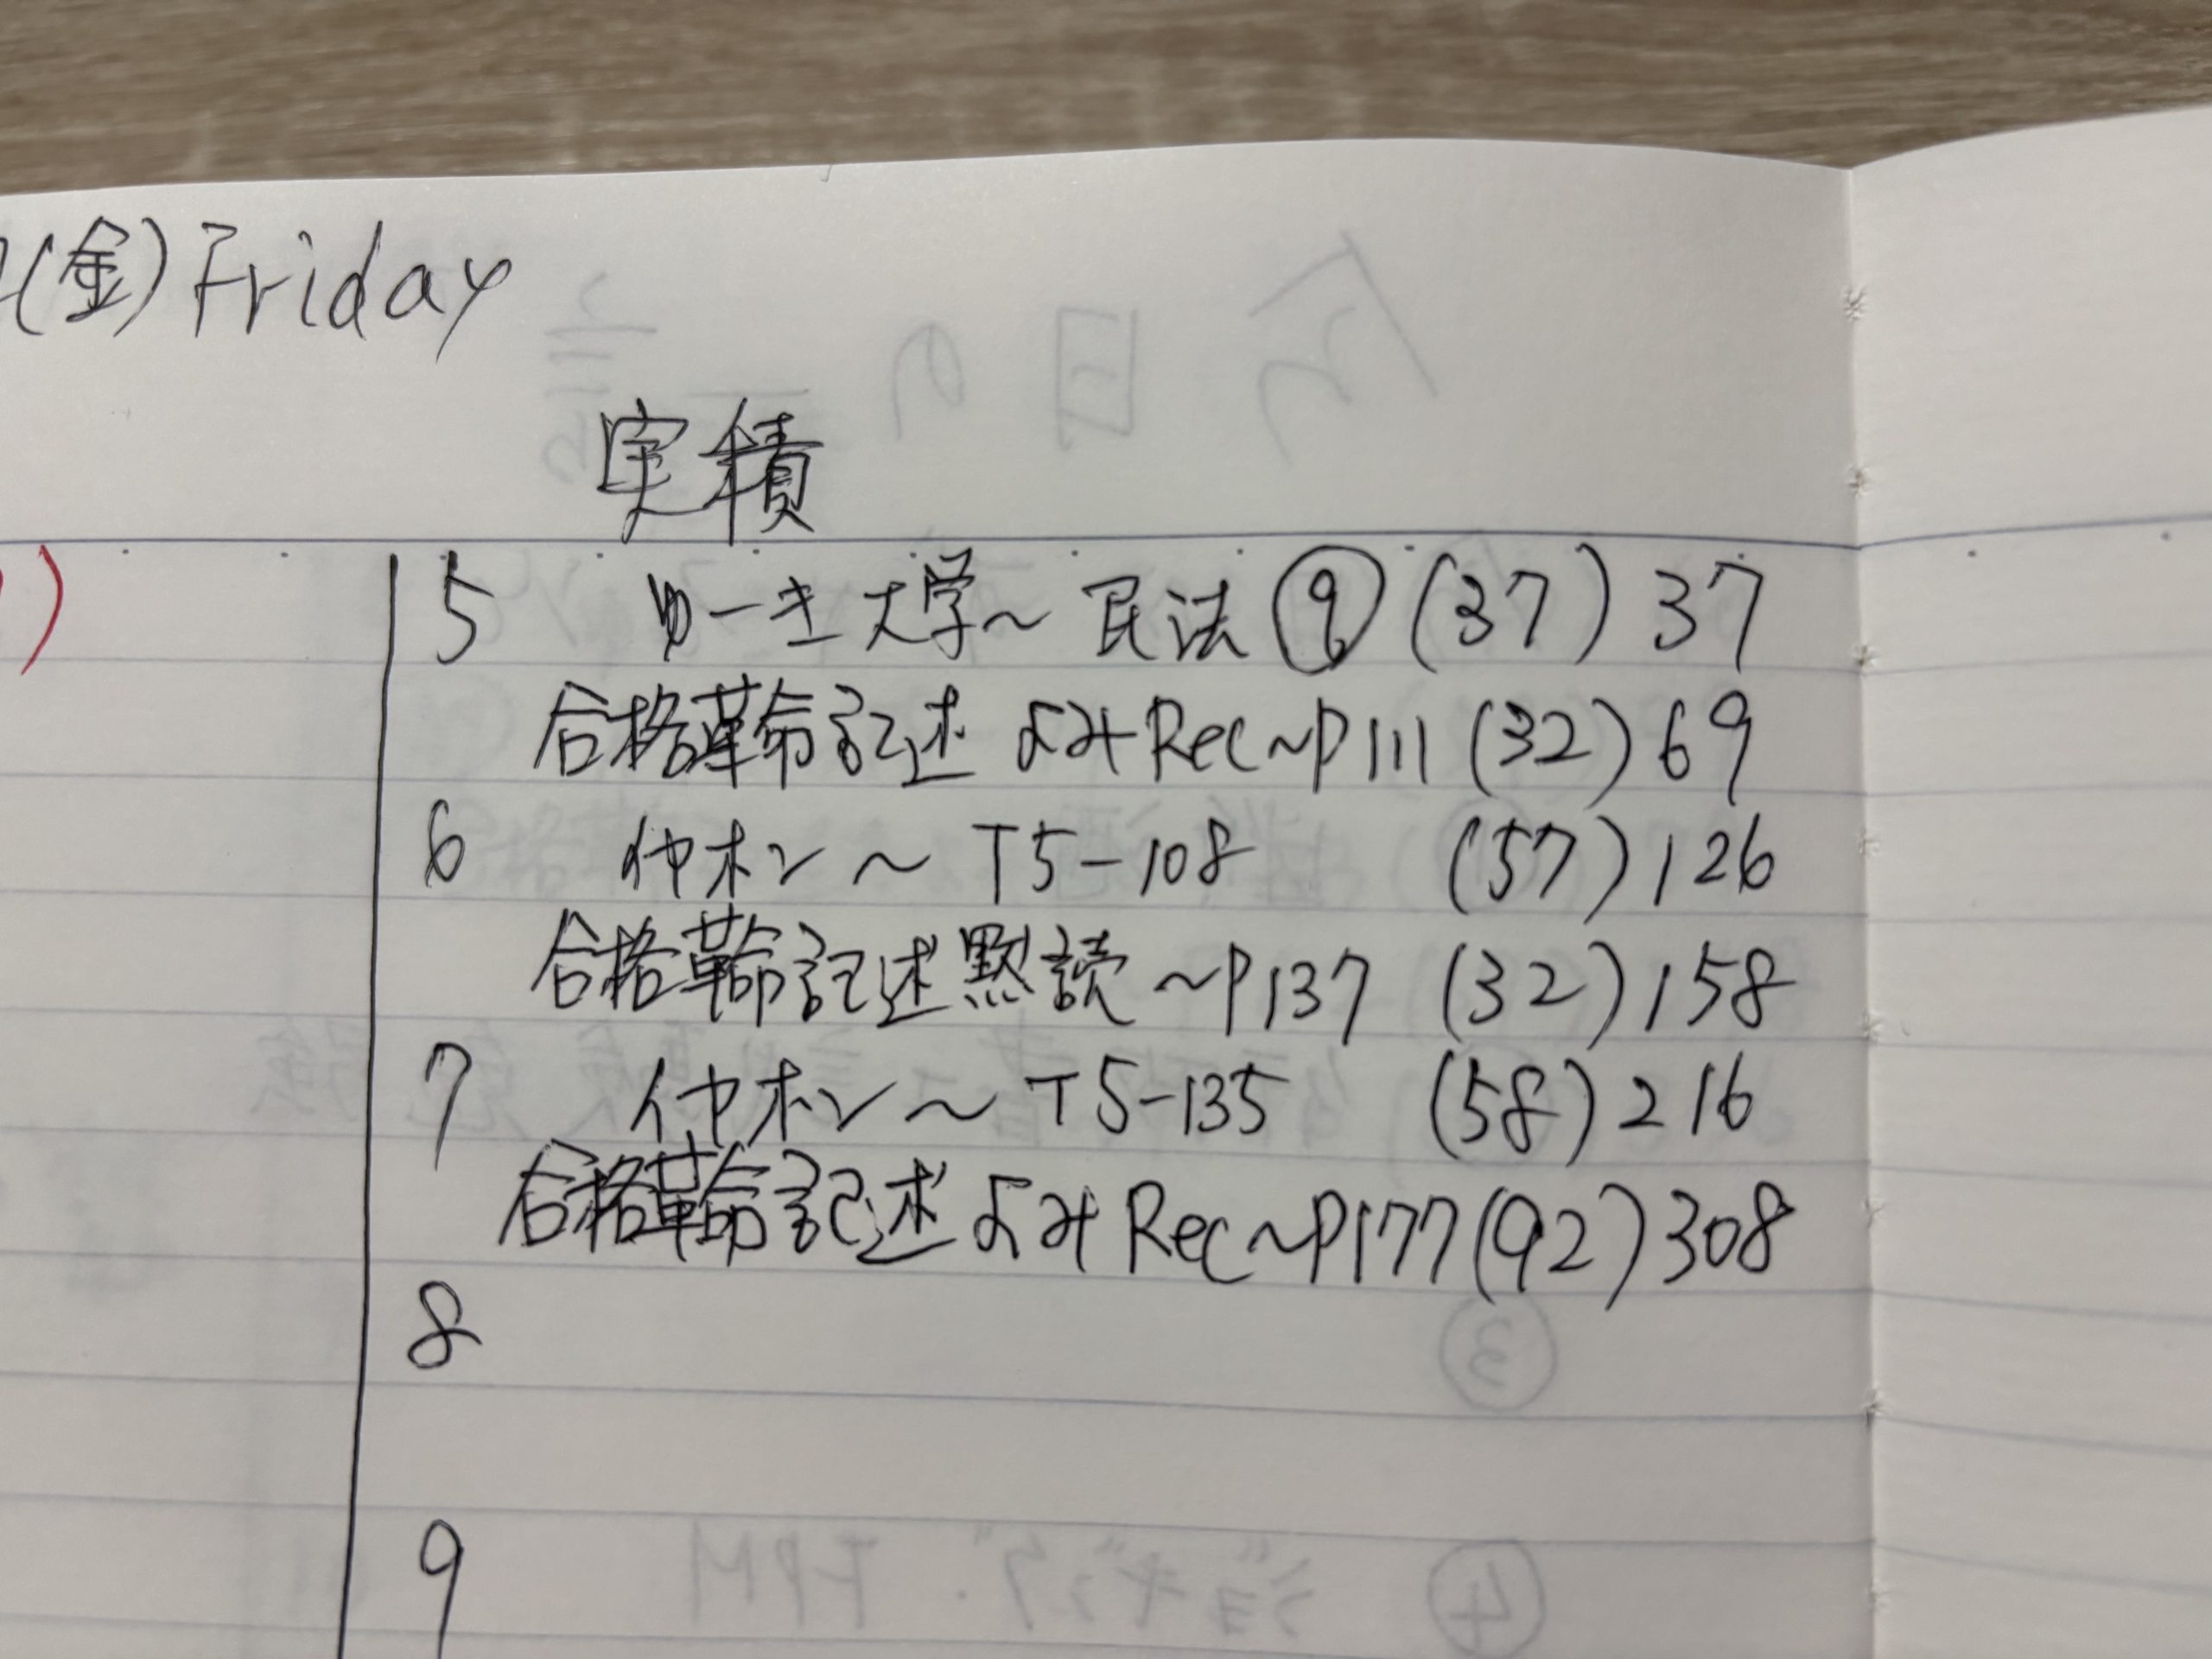 (金) Friday
実績
5 ゆーき大学～民法⑨ (37) 37
合格革命記述よみRec～P111 (32) 69
6 仲ホン～T5-108 (57) 126
合格革命記述黙読～P137 (32) 158
7 仲ホン～T5-135 (58) 216
合格革命記述よみRec～P177 (92) 308
8
9